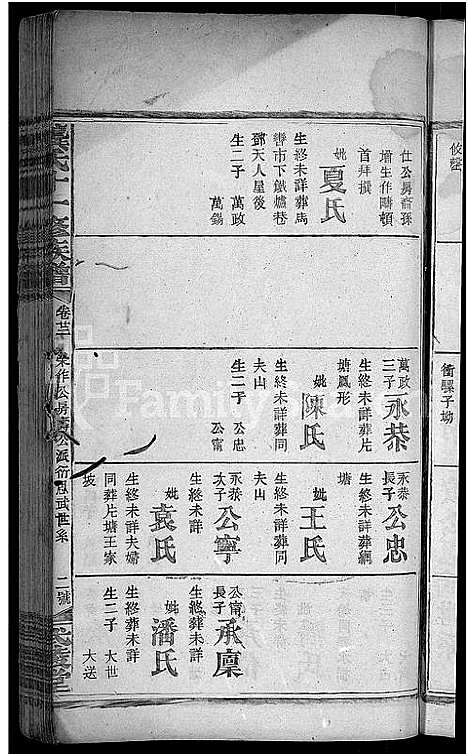 攸聯
衝騾子坳
仕公房裔孫
增生作疇頓
首拜撰
妣夏氏
生終未詳葬馮
鄧天人屋後
生二子 萬政
萬錫
萬政
三子永恭
生終未詳葬片
塘鳳形
妣陳氏
生終未詳葬同
夫山
生二子 公忠
公甯
永恭
長子公忠
生終未詳葬網
塘
妣王氏
生終未詳葬同
夫山
永恭
次子公寧
生終未詳
妣袁氏
生終未詳夫婦
同葬片塘王家
坡
公甯
長子承廩
生終葬未詳
妣潘氏
生終葬未詳
生二子 大世
大送
氏十一修族譜
二號
FamilySearch